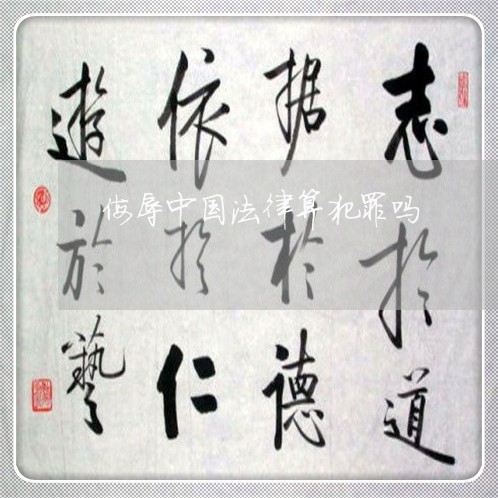 志於道
据於德
依於仁
遊於藝
侮辱中国法律算犯罪吗